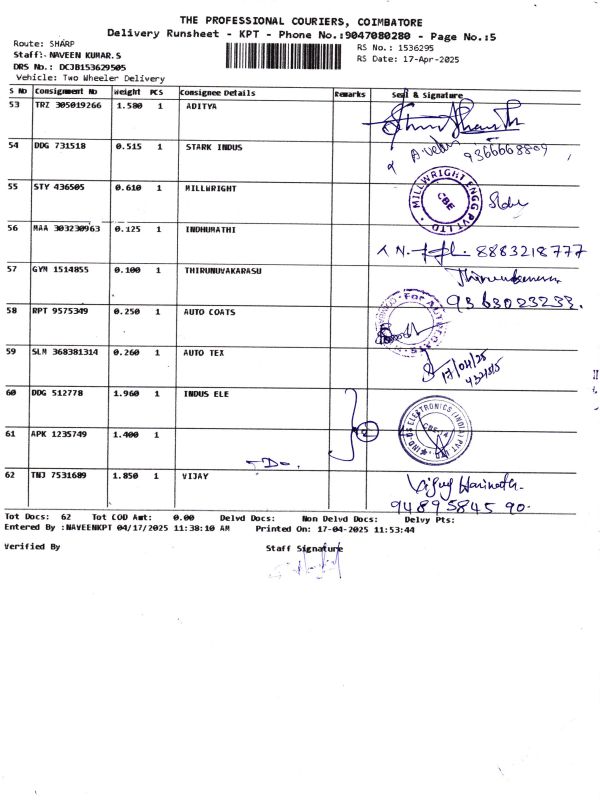 THE PROFESSIONAL COURIERS, COIMBATORE
Delivery Runsheet - KPT - Phone No.:9047080280 - Page No.:5
Route: SHARP
RS No.: 1536295
Staff:- NAVEEN KUMAR.S
RS Date: 17-Apr-2025
DRS No.: DCJB153629505
Vehicle: Two Wheeler Delivery
S No Consignment No Weight PCS Consignee Details Remarks Seal & Signature
53 TRZ 305019266 1.580 1 ADITYA
54 DDG 731518 0.515 1 STARK INDUS
A. Velu 9366668809
55 STY 436505 0.610 1 MILLWRIGHT
MILLWRIGHT ENGG PVT LTD
CBE
56 MAA 303230963 0.125 1 INDHUMATHI
N. 8883218777
57 GYM 1514855 0.100 1 THIRUNUVAKARASU
9363023232.
58 RPT 9575349 0.250 1 AUTO COATS
59 SLM 368381314 0.260 1 AUTO TEX
17/04/25
60 DDG 512778 1.960 1 INDUS ELE
2
IND-US ELECTRONICS (INDIA) PVT LTD
CBE-14
61 APK 1235749 1.400 1
-Do.
62 TNJ 7531689 1.850 1 VIJAY
Vijay Harinath.
94895845 90.
Tot Docs: 62 Tot COD Amt: 0.00 Delvd Docs: Non Delvd Docs: Delvy Pts:
Entered By :NAVEENKPT 04/17/2025 11:38:10 AM Printed On: 17-04-2025 11:53:44
Verified By Staff Signature